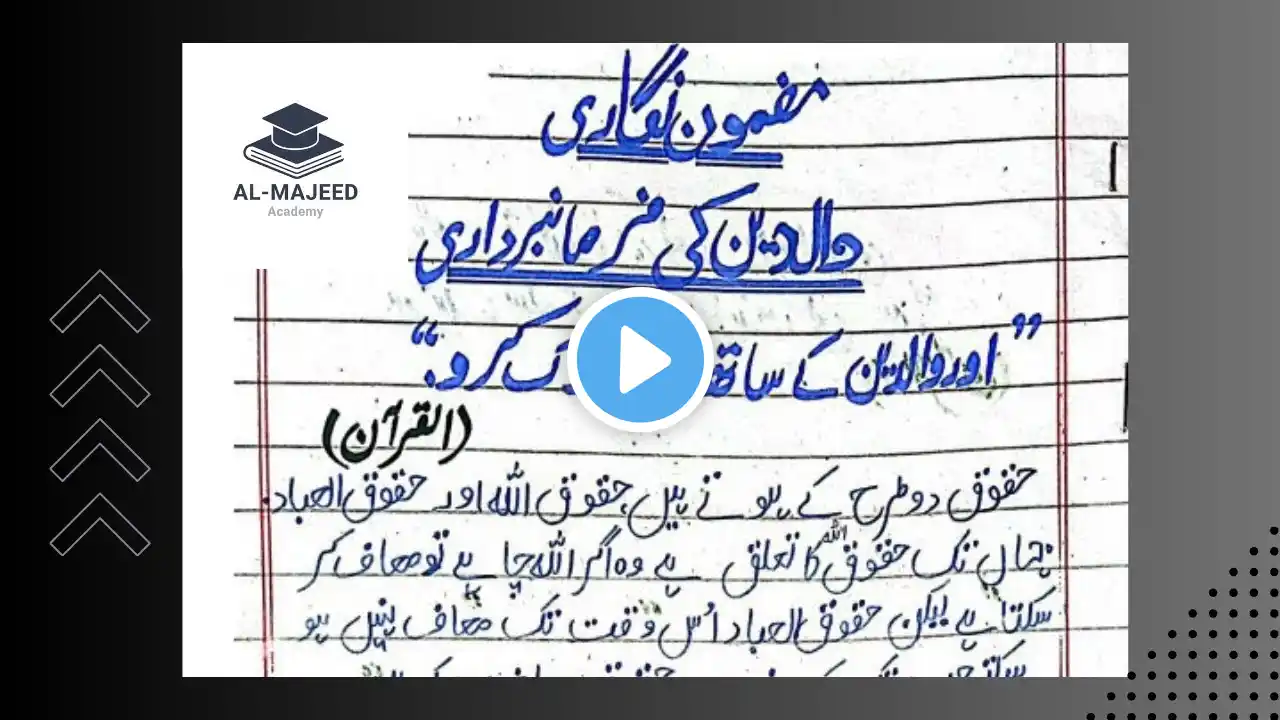 AL-MAJEED
Academy
مضمون نگاری
والدین کی فرمانبرداری
”اور والدین کے ساتھ کرو۔“
(القرآن)
حقوق دو طرح کے ہوتے ہیں، حقوق اللہ اور حقوق العباد۔
جہاں تک حقوق اللہ کا تعلق ہے وہ اگر اللہ چاہے تو معاف کر
سکتا ہے لیکن حقوق العباد اُس وقت تک معاف نہیں ہو